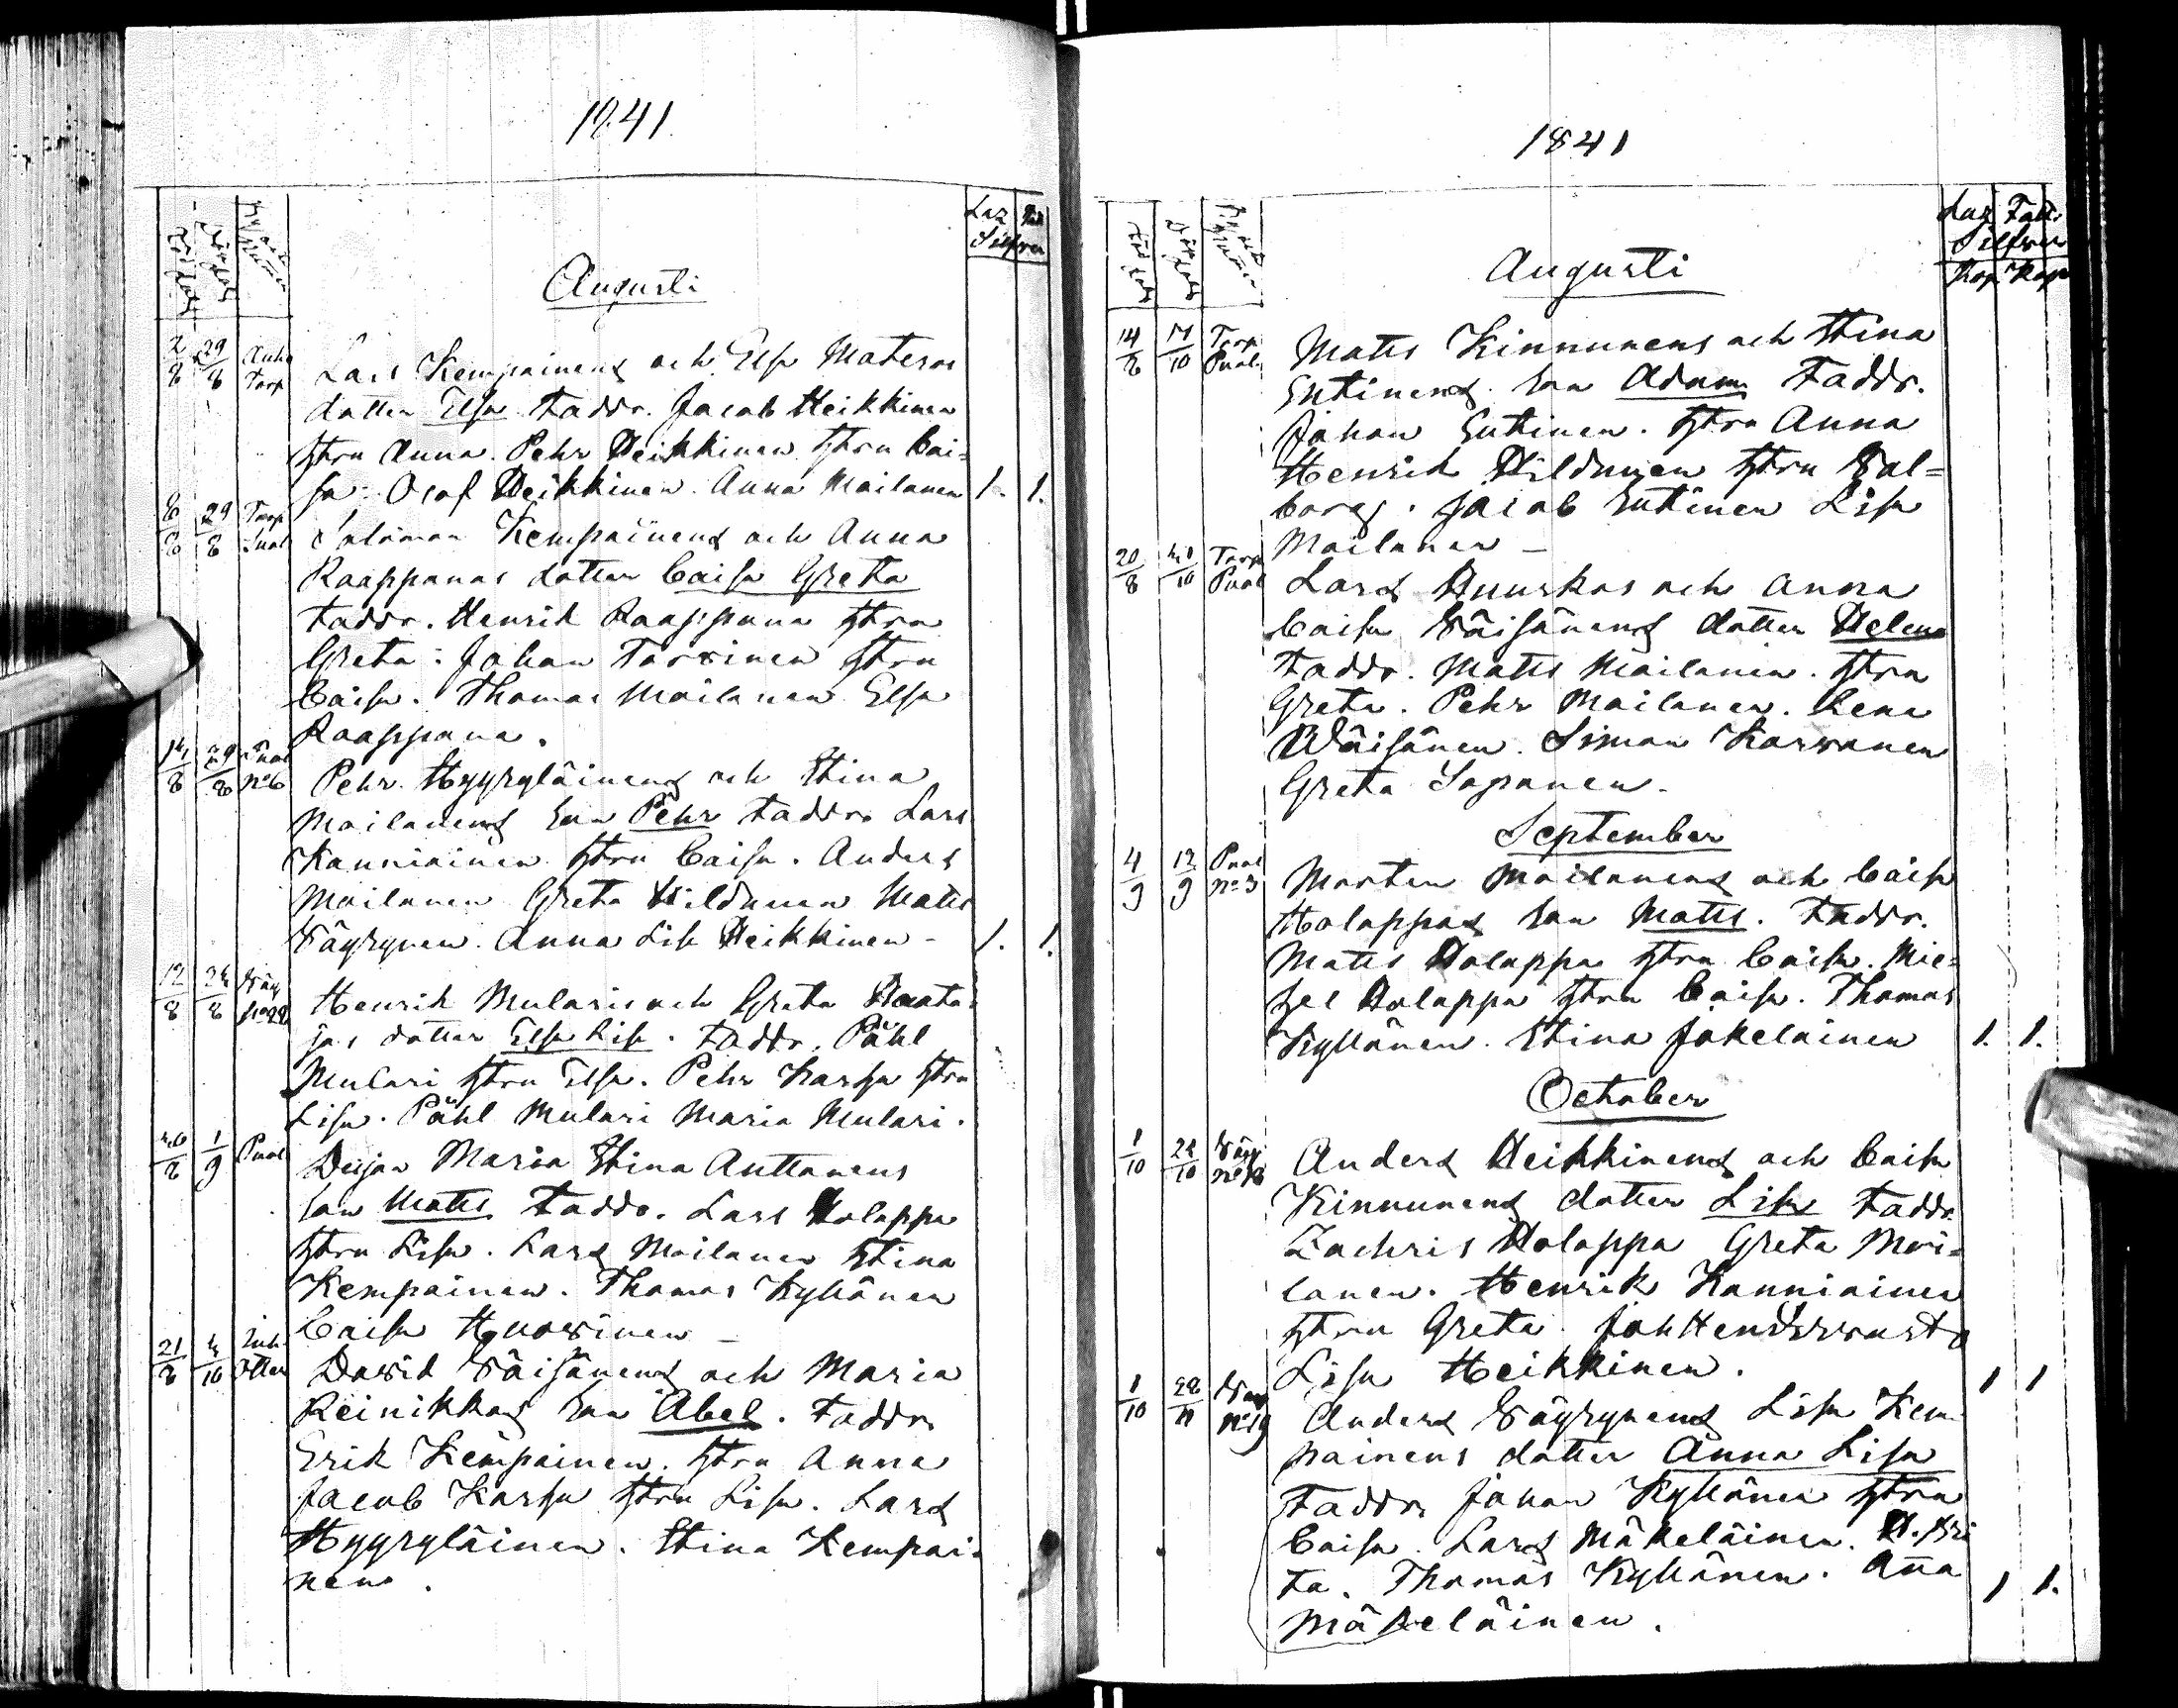 1841
Laz Fatt
Silfver
Augusti
2/8 29/8 Anh Torp Lars Kempainens och Elsa Materos
dotter Elsa Faddr. Jacob Heikkinen
hstru Anna. Pehr Heikkinen hstru Cai=
sa. Olof Heikkinen. Anna Mailanen 1. 1.
8/8 29/8 Torp Puol Salomon Kempainens och Anna
Raappanas dotter Caisa Greta
Faddr. Henrik Raappana hstru
Greta. Johan Torvinen hstru
Caisa. Thomas Moilanen Elsa
Raappana.
14/8 29/8 Puol No 6 Pehr Hyyryläinens och Stina
Moilanens son Pehr Faddr. Lars
Kanniainen hstru Caisa. Anders
Moilanen Greta Hildunen Matts
Väyrynen. Anna Lisa Heikkinen - 1. 1.
12/8 24/8 Väy No 22 Henrik Mularis och Greta Raata=
jas dotter Elsa Lisa. Faddr. Påhl
Mulari hstru Elsa. Pehr Karhu hstru
Lisa. Påhl Mulari Maria Mulari.
20/8 1/9 Puol Deijan Maria Stina Anttonens
son Matts Faddr. Lars Holappa
hstru Lisa. Lars Moilanen Stina
Kempainen. Thomas Kyllönen
Caisa Huovinen -
21/8 4/10 Inh David Väisänens och Maria
Reinikkas son Abel. Faddr.
Erik Kempainen. hstru Anna
Jacob Karhu hstru Lisa. Lars
Hyyryläinen. Stina Kempai=
nen.
1841
Laz Fatt.
Silfver
Kop Kop
Augusti
14/8 17/10 Torp Puol Matts Kinnunens och Stina
Entinens son Adam Faddr.
Johan Entinen. hstru Anna
Henrik Hildunen hstru Val=
borg. Jacob Entinen Lisa
Moilanen -
20/8 21/10 Torp Puol Lars Huuskos och Anna
Caisa Väisänens dotter Helena
Faddr. Matts Moilanen. hstru
Greta. Pehr Moilanen. Lena
Wäisänen. Simon Karvonen
Greta Sopanen.
September
4/9 12/9 Puol No 3 Morten Moilanens och Caisa
Holappas son Matts. Faddr.
Matts Holappa hstru Caisa. Mic=
hel Holappa hstru Caisa. Thomas
Kyllönen. Stina Jokelainen 1. 1.
October
1/10 24/10 Väy No 18 Anders Heikkinens och Caisa
Kinnunens dotter Lisa Faddr.
Zachris Holappa Greta Moi=
lanen. Henrik Kanniainen
hstru Greta. Joh
Lisa Heikkinen. 1 1
1/10 No 19 Anders Väyrynens Lisa Kem=
painens dotter Anna Lisa
Faddr. Johan Kyllönen hstru
Caisa. Lars Mäkeläinen. H. Bri
ta. Thomas Kyllönen. Anna
Mäkeläinen. 1 1.